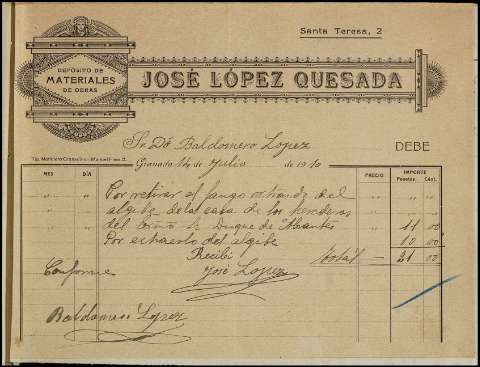 Santa Teresa, 2
DEPÓSITO DE
MATERIALES
DE OBRAS
JOSÉ LÓPEZ QUESADA
Sr. Dn. Baldomero Lopez
DEBE
Granada 14 de Julio de 1910
MES DÍA PRECIO IMPORTE
Pesetas Cént.
Por retirar el fango estraido del
algibe de la casa de los herederos
del Duque de Abrantes 11 00
Por estraerlo del algibe 10 00
Recibí total — 21 00
Conforme José Lopez
Baldomero López